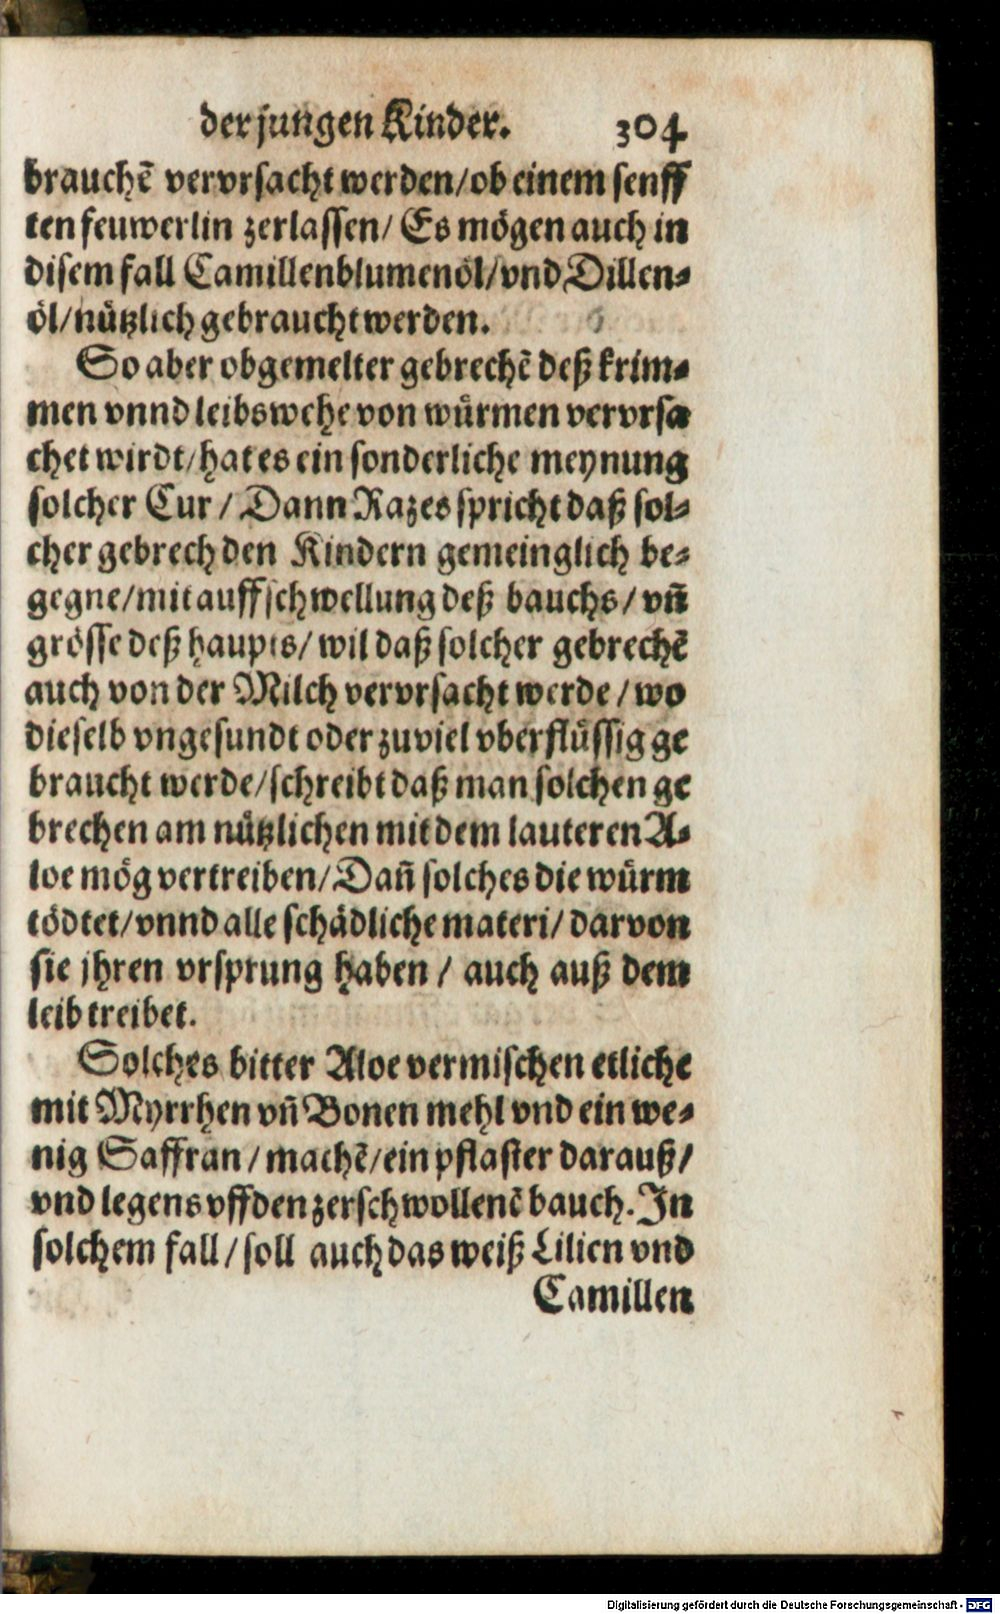 der jungen Kinder. 304
brauchẽ vervrsacht werden/ob einem senff
ten feuwerlin zerlassen/ Es mögen auch in
disem fall Camillenblumenöl/vnd Dillen-
öl/nützlich gebraucht werden.
So aber obgemelter gebrechẽ deß krim-
men vnnd leibswehe von würmen vervrsa
chet wirdt/hat es ein sonderliche meynung
solcher Cur / Dann Razes spricht daß sol-
cher gebrech den Kindern gemeinglich be-
gegne/mit auffschwellung deß bauchs/ vñ
grösse deß haupts/ wil daß solcher gebrechẽ
auch von der Milch vervrsacht werde / wo
dieselb vngesundt oder zuviel vberflüssig ge
braucht werde/schreibt daß man solchen ge
brechen am nützlichen mit dem lauteren A-
loe mög vertreiben/ Dañ solches die würm
tödtet/vnnd alle schädliche materi/ darvon
sie jhren vrsprung haben / auch auß dem
leib treibet.
Solches bitter Aloe vermischen etliche
mit Myrrhen vñ Bonen mehl vnd ein we-
nig Saffran / machẽ/ein pflaster darauß/
vnd legens vff den zerschwollenẽ bauch. In
solchem fall / soll auch das weiß Lilien vnd
Camillen
Digitalisierung gefördert durch die Deutsche Forschungsgemeinschaft - DFG